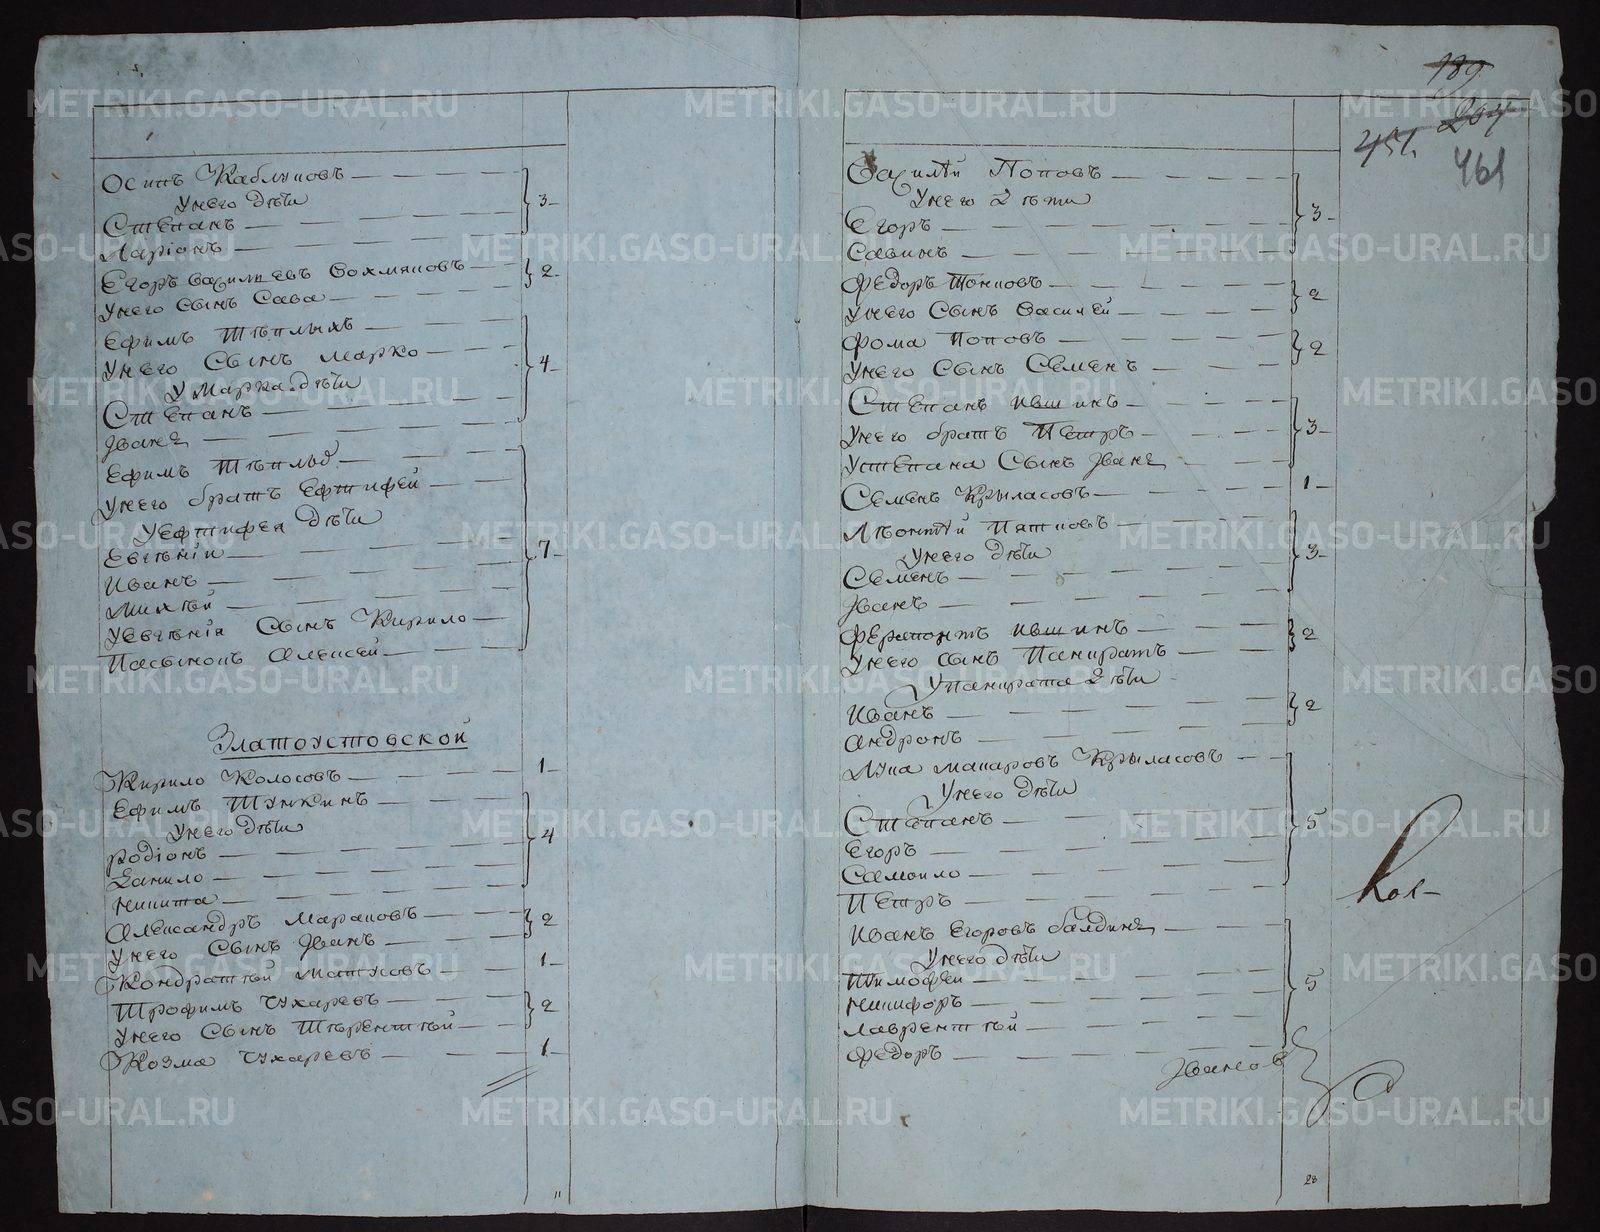 Осипъ Каблуковъ 3
Унего дѣти
Степанъ
Ларіонъ
Егоръ Василиевъ Вохмяковъ 2
Унего Сынъ Сава
Ефимъ Тѣплыхъ
Унего Сынъ Марко 4
У Марка дѣти
Степанъ
Іванъ
Ефимъ Тѣплыхъ
Унего братъ Ефтифей
Уефтифея дѣти
Евгѣніи 7
Иванъ
Михѣй
Уевгѣнія Сынъ Кирило
Пасынокъ Алексей
Златоустовской
Кирило Колосовъ 1
Ефимъ Тункинъ
Унего дѣти 4
Родіонъ
Данило
Никита
Александръ Мараковъ 2
Унего Сынъ Іванъ
Кондратѣй Матусовъ 1
Трофимъ Чухаревъ 2
Унего Сынъ Тѣрентѣй
Козма Чухаревъ 1
11
189
204
451
461
Василѣй Поповъ
Унего 2 ѣти 3
Егоръ
Савинъ
Федоръ 2
Унего Сынъ Василей
Фома Поповъ 2
Унего Сынъ Семенъ
Степанъ Ившинъ
Унего братъ Петръ 3
Устепана Сынъ Іванъ
Семенъ Крыласовъ 1
Лѣонтѣй Пятковъ
Унего дѣти 3
Семенъ
Іванъ
Ферапонтъ Ившинъ 2
Унего сынъ Панкратъ
Упанкрата 2 ѣти
Иванъ 2
Андронъ
Лука Макаровъ Крыласовъ
Унего дѣти
Степанъ 5
Егоръ
Самоило
Петръ
Иванъ Егоровъ балдинъ
Унего дѣти
Тимофеи 5
Никифоръ
Лаврентѣй
Федоръ
Кол
Івановъ
28